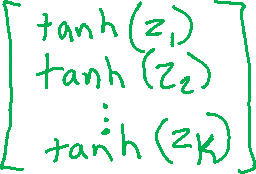 tanh(z₁)
tanh(z₂)
⋮
tanh(zK)